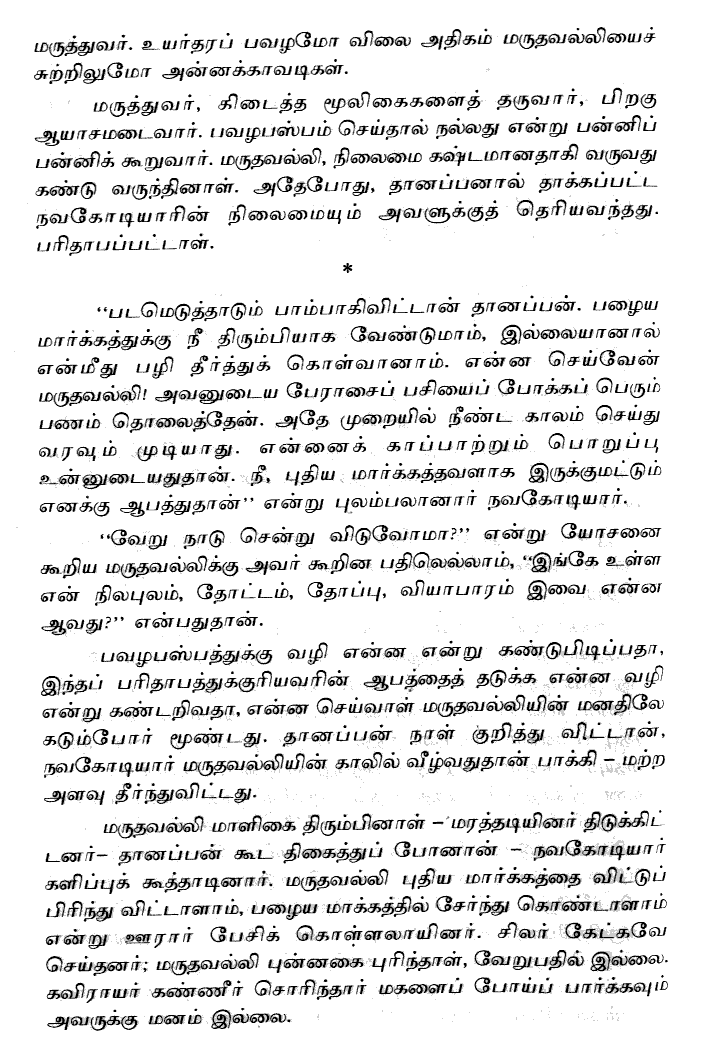 மருத்துவர். உயர்தரப் பவழமோ விலை அதிகம் மருதவல்லியைச்
சுற்றிலுமோ அன்னக்காவடிகள்.
மருத்துவர், கிடைத்த மூலிகைகளைத் தருவார், பிறகு
ஆயாசமடைவார். பவழபஸ்பம் செய்தால் நல்லது என்று பன்னிப்
பன்னிக் கூறுவார். மருதவல்லி, நிலைமை கஷ்டமானதாகி வருவது
கண்டு வருந்தினாள். அதேபோது, தானப்பனால் தாக்கப்பட்ட
நவகோடியாரின் நிலைமையும் அவளுக்குத் தெரியவந்தது.
பரிதாபப்பட்டாள்.
*
“படமெடுத்தாடும் பாம்பாகிவிட்டான் தானப்பன். பழைய
மார்க்கத்துக்கு நீ திரும்பியாக வேண்டுமாம், இல்லையானால்
என்மீது பழி தீர்த்துக் கொள்வானாம். என்ன செய்வேன்
மருதவல்லி! அவனுடைய பேராசைப் பசியைப் போக்கப் பெரும்
பணம் தொலைத்தேன். அதே முறையில் நீண்ட காலம் செய்து
வரவும் முடியாது. என்னைக் காப்பாற்றும் பொறுப்பு
உன்னுடையதுதான். நீ, புதிய மார்க்கத்தவளாக இருக்குமட்டும்
எனக்கு ஆபத்துதான்” என்று புலம்பலானார் நவகோடியார்.
“வேறு நாடு சென்று விடுவோமா?” என்று யோசனை
கூறிய மருதவல்லிக்கு அவர் கூறின பதிலெல்லாம், “இங்கே உள்ள
என் நிலபுலம், தோட்டம், தோப்பு, வியாபாரம் இவை என்ன
ஆவது?” என்பதுதான்.
பவழபஸ்பத்துக்கு வழி என்ன என்று கண்டுபிடிப்பதா,
இந்தப் பரிதாபத்துக்குரியவரின் ஆபத்தைத் தடுக்க என்ன வழி
என்று கண்டறிவதா, என்ன செய்வாள் மருதவல்லியின் மனதிலே
கடும்போர் மூண்டது. தானப்பன் நாள் குறித்து விட்டான்,
நவகோடியார் மருதவல்லியின் காலில் வீழ்வதுதான் பாக்கி – மற்ற
அளவு தீர்ந்துவிட்டது.
மருதவல்லி மாளிகை திரும்பினாள் – மரத்தடியினர் திடுக்கிட்
டனர்– தானப்பன் கூட திகைத்துப் போனான் – நவகோடியார்
களிப்புக் கூத்தாடினார். மருதவல்லி புதிய மார்க்கத்தை விட்டுப்
பிரிந்து விட்டாளாம், பழைய மாக்கத்தில் சேர்ந்து கொண்டாளாம்
என்று ஊரார் பேசிக் கொள்ளலாயினர். சிலர் கேட்கவே
செய்தனர்; மருதவல்லி புன்னகை புரிந்தாள், வேறுபதில் இல்லை.
கவிராயர் கண்ணீர் சொரிந்தார் மகளைப் போய்ப் பார்க்கவும்
அவருக்கு மனம் இல்லை.